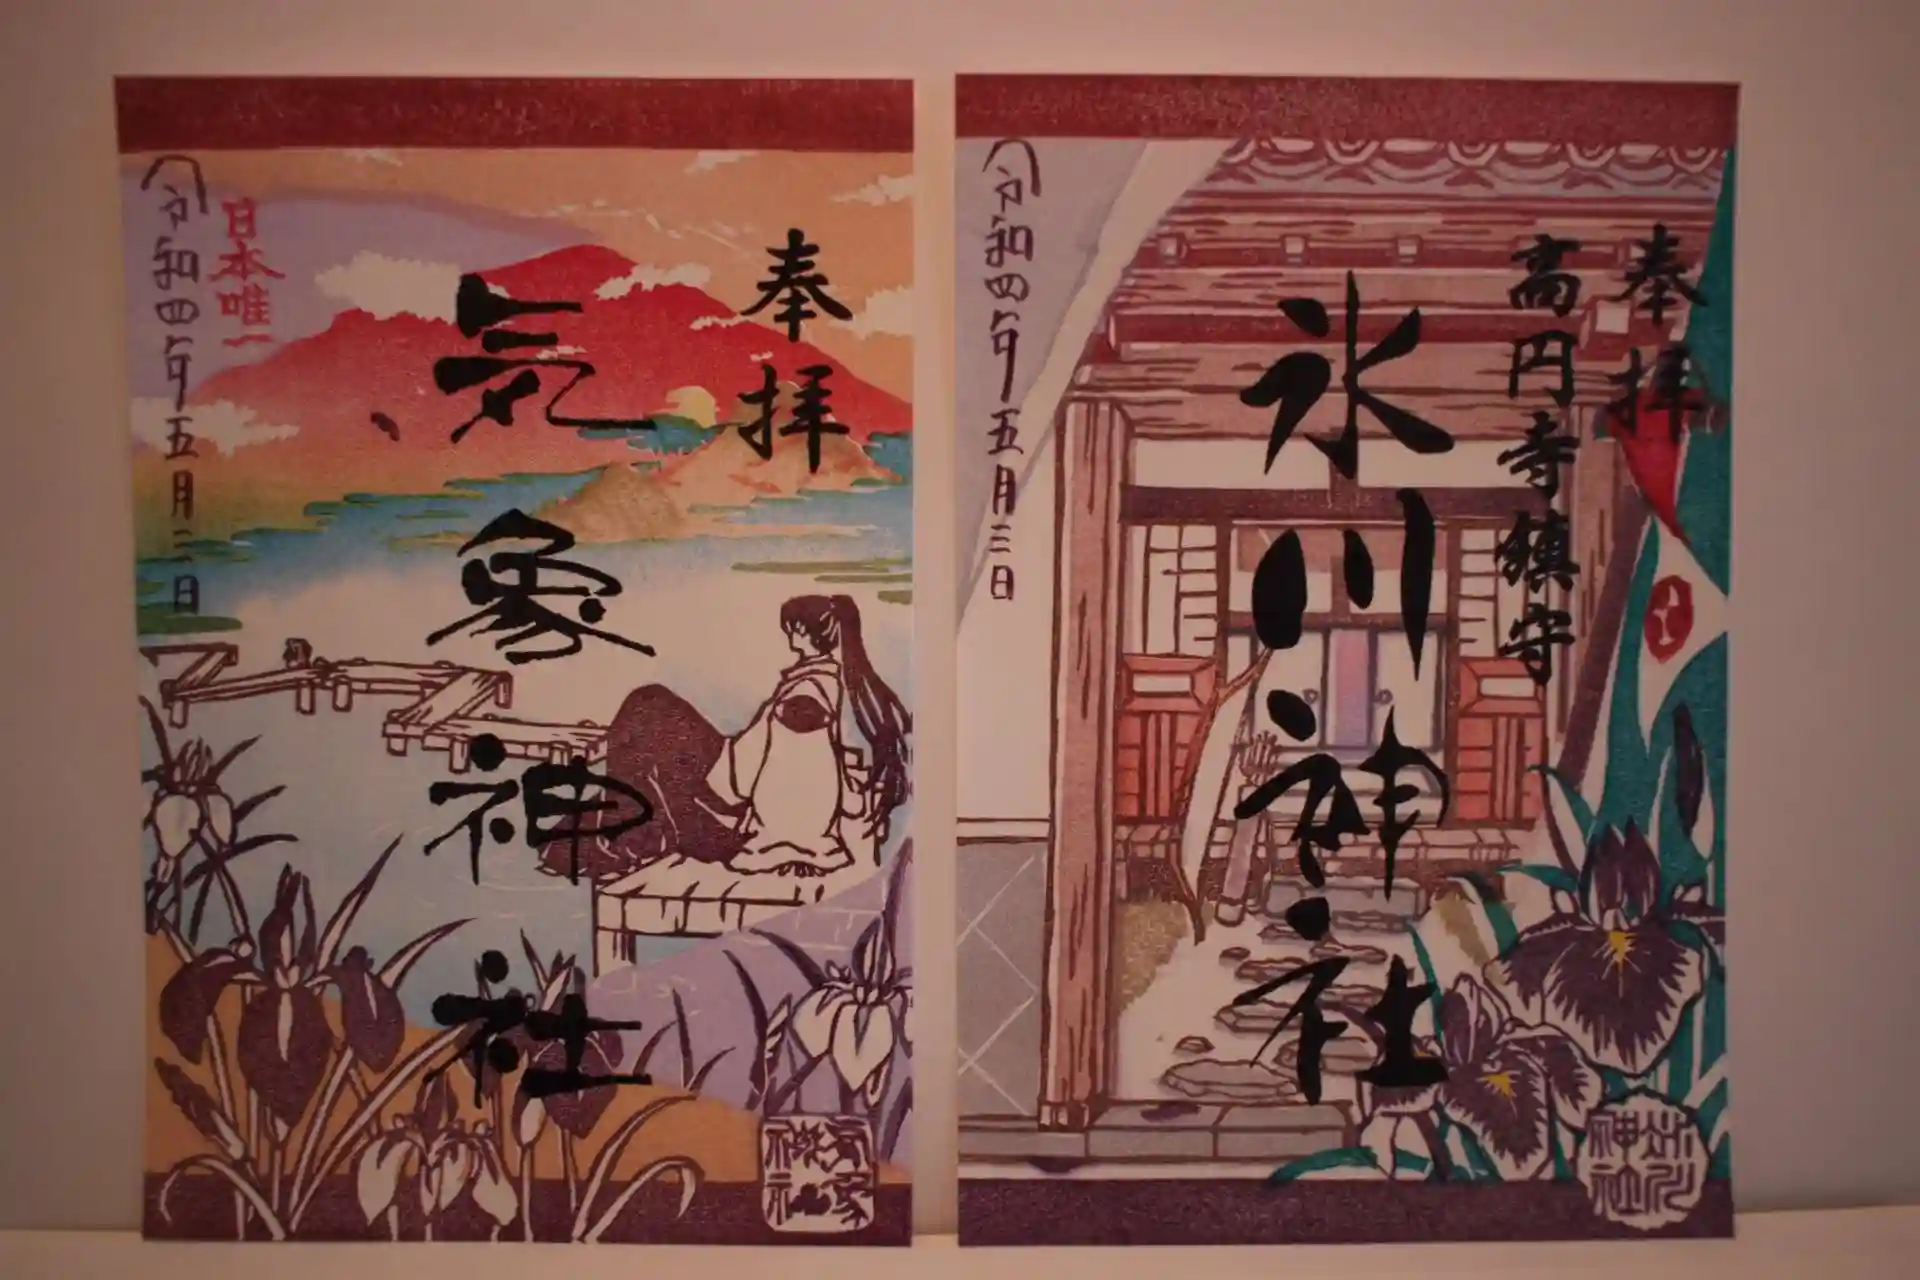 奉拝
気象神社
日本唯一
令和四年五月三日
気象神社
奉拝
高円寺鎮守
氷川神社
令和四年五月三日
氷川神社